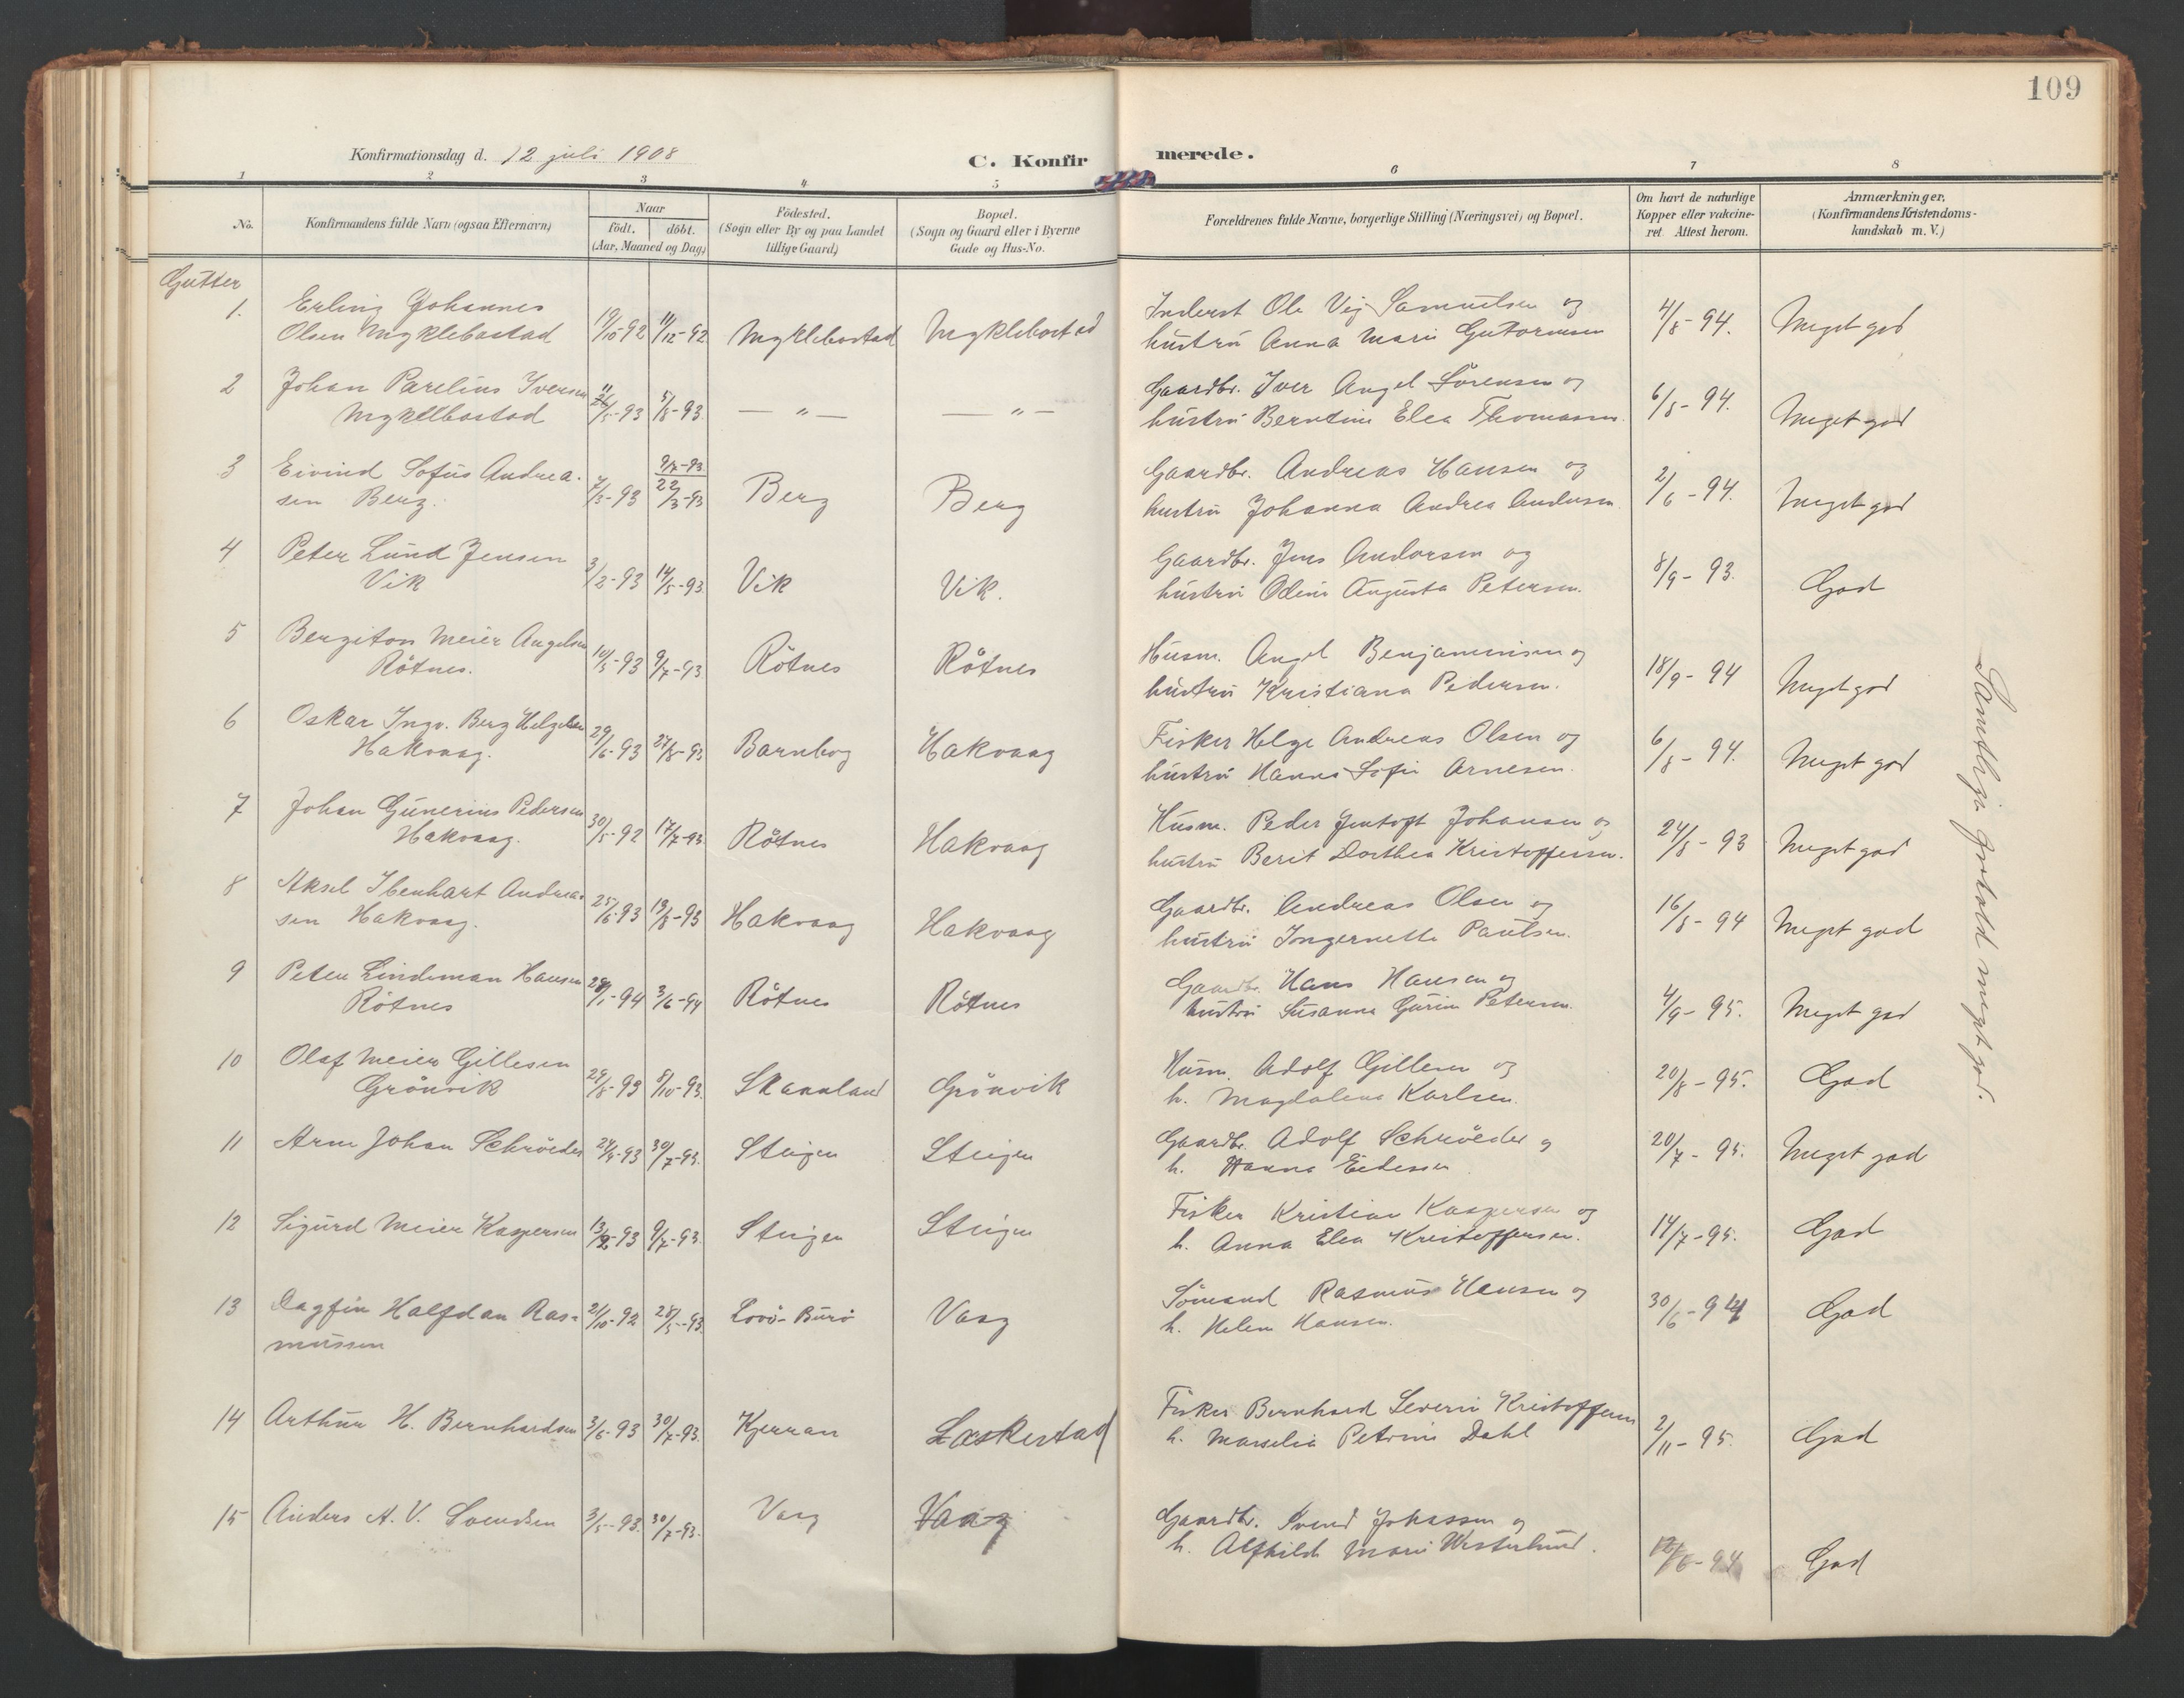 109
Konfirmationsdag d. 12 juli 1908
C. Konfirmerede.
1 2 3 4 5 6 7 8
No.
Konfirmandens fulde Navn (ogsaa Efternavn)
Naar
födt. döbt.
(Aar, Maaned og Dag)
Födested.
(Sogn eller By og paa Landet
tillige Gaard)
Bopæl.
(Sogn og Gaard eller i Byerne
Gade og Hus-No.
Forældrenes fulde Navne, borgerlige Stilling (Næringsvei) og Bopæl.
Om havt de naturlige
Kopper eller vakcine-
ret. Attest herom.
Anmærkninger.
(Konfirmandens Kristendoms-
kundskab m. V.)
Gutter
1. Erling Johannes
Olsen Myklebostad 19/10-92 11/12-92 Myklebostad Myklebostad
Inderst Ole Vej Samuelsen og
hustru Anna Marie Gutormsen 4/8-94. Meget god
2 Johan Parelius Iversen
Myklebostad 11/5-93 5/8-93. — " — — " —
Gaardbr. Iver Angel Sörensen og
hustru Berntine Elea Thomassen. 6/8-94. Meget god
3 Eivind Sofus Andrea-
sen Berg. 7/3-93 9/7-93 22/3-93 Berg Berg
Gaardbr. Andreas Hansen og
hustru Johanna Andrea Andersen 2/6-94. Meget god
4 Peter Lund Jensen
Vik 3/2-93 14/5-93. Vik Vik.
Gaardbr. Jens Andorsen og
hustru Odine Augusta Petersen. 8/9-93. God
5 Bergiton Meier Angelsen
Rötnes. 10/5-93 9/7-93. Rötnes Rötnes
Husm. Angel Benjaminsen og
hustru Kristiana Pedersen. 18/9-94 Meget god
6 Oskar Ingv. Berg Helgesen
Hakvaag. 29/6-93 27/8-93 Barnbog Hakvaag
Fisker Helge Andreas Olsen og
hustru Hanna Sofie Arnesen. 6/8-94. Meget god
7 Johan Gunerius Pedersen
Hakvaag. 30/5-92 17/7-93. Rötnes Hakvaag
Husm. Peder Jentoft Johansen og
hustru Berit Dorthea Kristoffersen. 24/8-93 Meget god
8 Aksel Ibenhart Andrea-
sen Hakvaag. 25/6-93 13/8-93 Hakvaag Hakvaag
Gaardbr. Andreas Olsen og
hustru Ingernette Paulsen. 16/8-94 Meget god
9 Peter Lindeman Hansen
Rötnes 28/1-94 3/6-94 Rötnes Rötnes
Gaardbr. Hans Hansen og
hustru Susanna Gurine Petersen. 4/9-95. Meget god
10 Olaf Meier Gillesen
Grönvik 29/8-93 8/10-93. Skannland Grönvik
Husm. Adolf Gillesen og
h. Magdalena Karlsen. 20/8-95. God
11 Arne Johan Schröeder 24/4-93 30/7-93. Steigen Steigen
Gaardbr. Adolf Schröeder og
h. Hanna Eidissen 20/7-95. Meget god
12 Sigurd Meier Kaspersen 13/3-93 9/7-93. Steigen Steigen
Fisker Kristian Kaspersen og
h. Anna Elea Kristoffersen. 14/7-95. God
13 Dagfin Halfdan Ras-
mussen 21/10-92 28/5-93 Lovö-Burö Vaag
Sömand Rasmus Hansen og
h. Helene Hansen. 30/6-94 God
14 Arthur H. Bernhardsen 3/6-93 30/7-93. Kjerran Laskestad
Fisker Bernhard Severin Kristoffersen
h. Marselie Petrine Dahl 2/11-95. God
15 Anders A. V. Svendsen 3/5-93. 30/7-93. Vaag Vaag
Gaardbr. Svend Johassen og
h. Alfhild Marie Westerlund. 12/6-94 God
Samtlige forhold meget god.